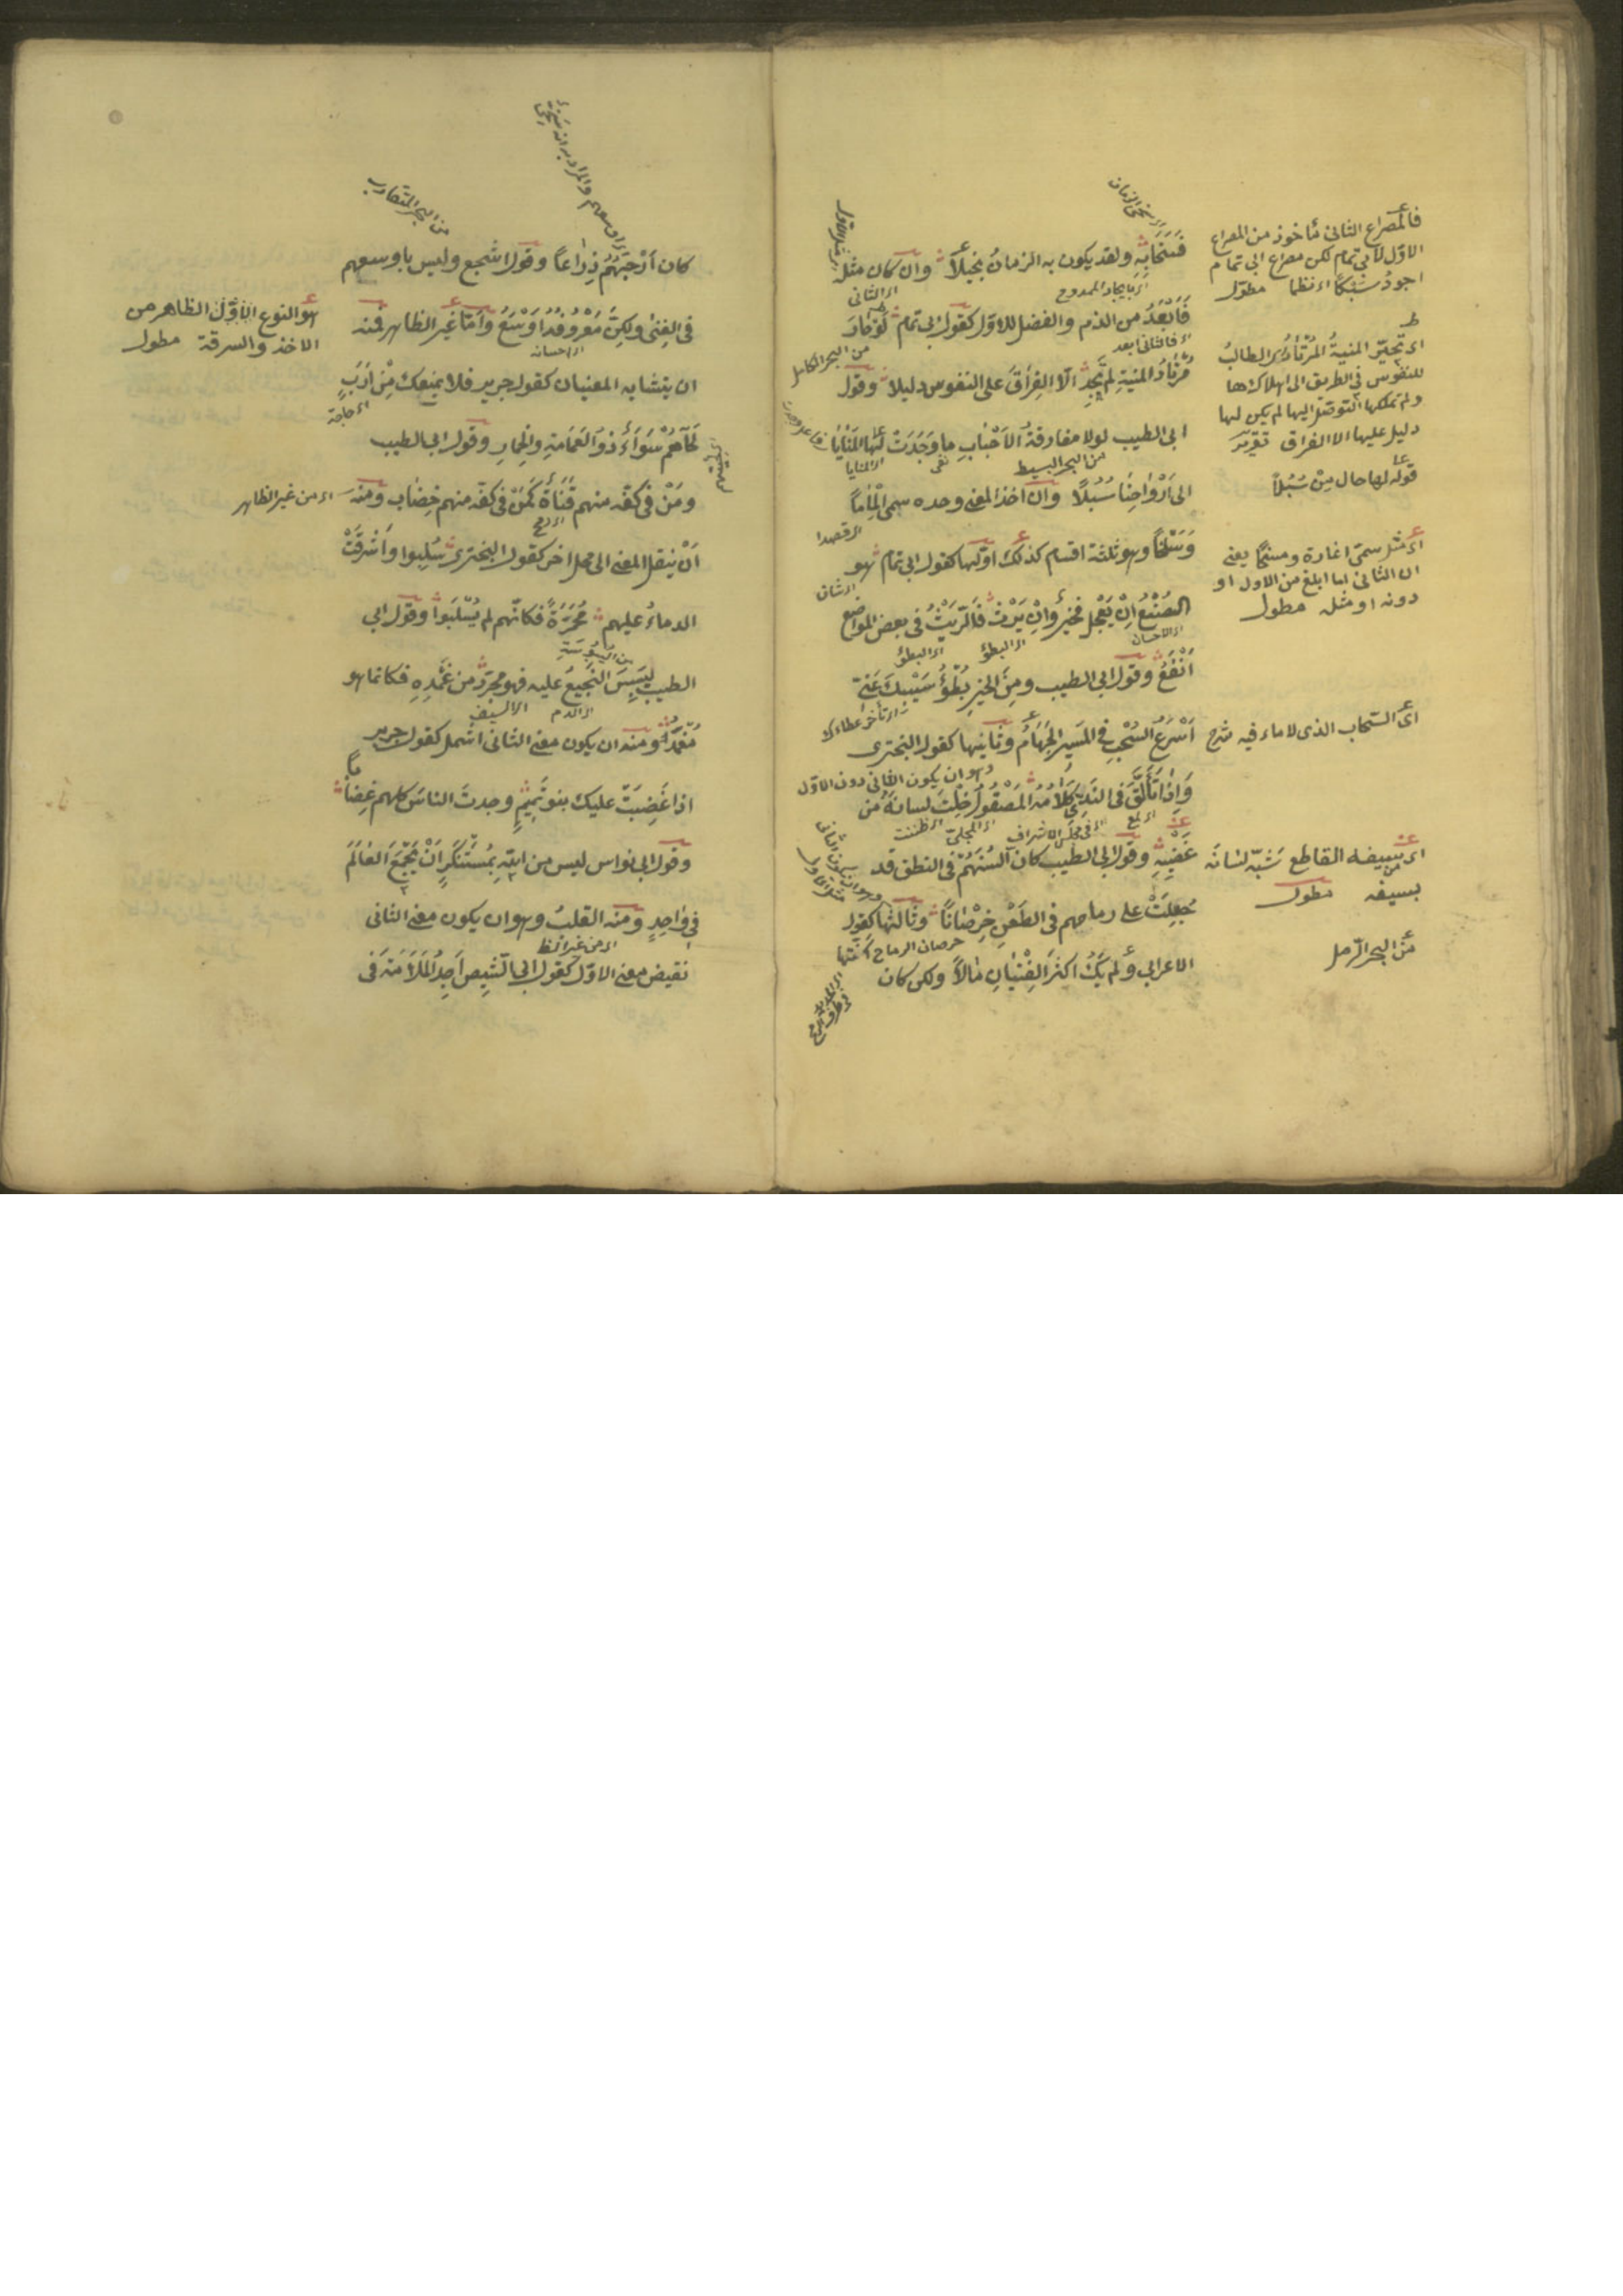 فسخا به ولقد يكون به الزمان بخيلا وان كان مثله
فابعد من الذم والفضل للاول كقول ابى تمام لو حار
مرتاد المنية لم تجد الا الفراق على النفوس دليلا وقول
ابى الطيب لولا مفارقة الاحباب ما وجدت لها المنايا
الى ارواحنا سبلا وان اخذ المعنى وحده سمى الماما
وسلخا وهو ثلثة اقسام كذلك اولها كقول ابى تمام هو
الصنع ان يعجل فخير وان يرث فالريث فى بعض المواضع
انفع وقول ابى الطيب ومن الخير بطؤ سيبك عنى
اسرع السحب فى المسير الجهام وثانيها كقول البحترى
واذا تألق فى الندى كلامه المصقول خلت لسانه من
عضبه وقول ابى الطيب كان السنهم فى النطق قد
جعلت على رماحهم فى الطعن خرصانا وثالثها كقول
الاعرابى ولم يك اكثر الفتيان مالا ولكن كان
فالمصراع الثانى مأخوذ من المصراع
الاول لابى تمام لكن مصراع ابى تمام
اجود سبكا اى نظما مطول
اى تحير المنية المرتاد اى الطالب
للنفوس فى الطريق الى اهلاكها
ولم يمكنها التوصل اليها لم يكن لها
دليل عليها الا الفراق
قوله لها حال من سبلا
اى مثل سمى اغارة ومسخا يعنى
ان الثانى اما ابلغ من الاول او
دونه او مثله مطول
اى السحاب الذى لا ماء فيه شرح
اى سيفه القاطع شبه لسانه
بسيفه مطول
من البحر الرمل
اى الثانى
اى فالثانى ابعد
من البحر الكامل
من البحر البسيط
اى المنايا
اى قصدا
اى شان
اى الاحسان
اى البطؤ
اى البطؤ
اى تأخر عطاءك
وهو ان يكون الثانى دون الاول
اى لمع
اى ظننت
خرصان الرماح اسنتها
كان ارحبهم ذراعا وقول اشجع وليس باوسعهم
فى الغنى ولكن معروفه اوسع واما غير الظاهر فمنه
ان يتشابه المعنيان كقول جرير فلا يمنعك من ارب
لحاهم سواء ذو العمامة والخمار وقول ابى الطيب
ومن فى كفه منهم قناة كمن فى كفه منهم خضاب ومنه
ان ينقل المعنى الى محل اخر كقول البحترى سلبوا واشرقت
الدماء عليهم محمرة فكانهم لم يسلبوا وقول ابى
الطيب يبس النجيع عليه فهو مجرد من غمده فكانما هو
مغمد ومنه ان يكون معنى الثانى اشمل كقول جرير
اذا غضبت عليك بنو تميم وجدت الناس كلهم غضابا
وقول ابى نواس ليس من الله بمستنكر ان يجمع العالم
فى واحد ومنه القلب وهو ان يكون معنى الثانى
نقيض معنى الاول كقول ابى الشيص اجد الملامة فى
من البحر المتقارب
هو النوع الاول الظاهر من
الاخذ والسرقة مطول
اى احسانه
اى حاجة
اى من غير الظاهر
اى رمح
من اليبوسة
اى الدم
اى السيف